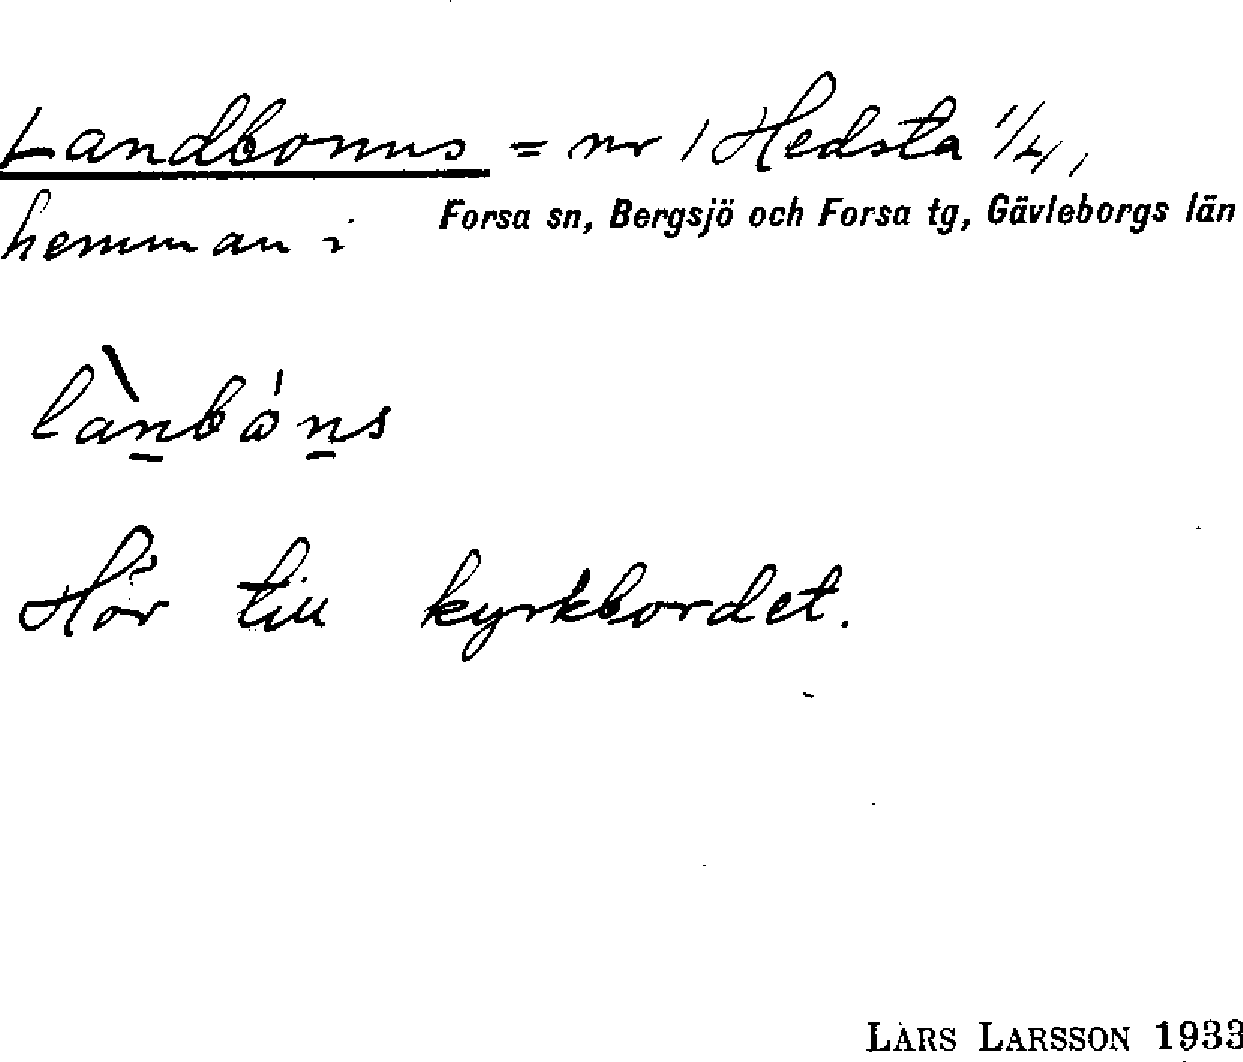 Landbonus = nr 1 Hedsta 1/4,
hemman i Forsa sn, Bergsjö och Forsa tg, Gävleborgs län
Hör till kyrkbordet.
LARS LARSSON 1933